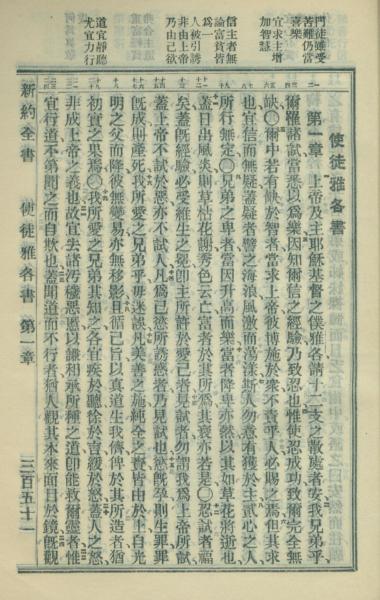 門徒雖受
苦難仍當
喜樂
宜求主增
加智慧
信主者無
論富貧皆
為一
人被引誘
非由上帝
乃由己欲
道宜靜聽
尤宜力行
使徒雅各書
第一章 上帝及主耶穌基督之僕雅各請十二支之散處者安我兄弟乎
爾羅諸試當悉以為樂因知爾信之經驗乃致忍也惟使忍成功致爾完全無
缺○爾中若有缺於智者當求上帝彼博施於衆不責乎人必賜之焉但其求
也宜信而無疑蓋疑者譬之海浪風激而蕩漾斯人勿意有獲於主貳心之人
所行無定○兄弟之卑者當因升高而樂富者降卑亦然以其如草花將逝也
蓋日出風炎則草枯花謝秀色云亡富者於其所為其衰亦若是○忍試者福
矣蓋旣經驗必受維生之冕卽主所許於愛己者見試者勿謂我爲上帝所試
蓋上帝不試於惡亦不試人凡爲己慾所誘惑者乃見試也慾旣孕則生罪罪
旣成則產死我所愛之兄弟乎毋迷誤凡美善之施純全之賚皆由於上自光
明之父而降彼無變易亦無移影且循己旨以真道生我儕俾於其所造者猶
初實之果焉○我所愛之兄弟其知之各宜疾於聽徐於言緩於怒蓋人之怒
非成上帝之義也故宜去諸汚穢惡慝以謙相承所種之道卽能救爾靈者惟
宜行道不第聞之而自欺也蓋聞道而不行者猶人觀其本來面目於鏡旣觀
新約全書 使徒雅各書 第一章 三百五十一